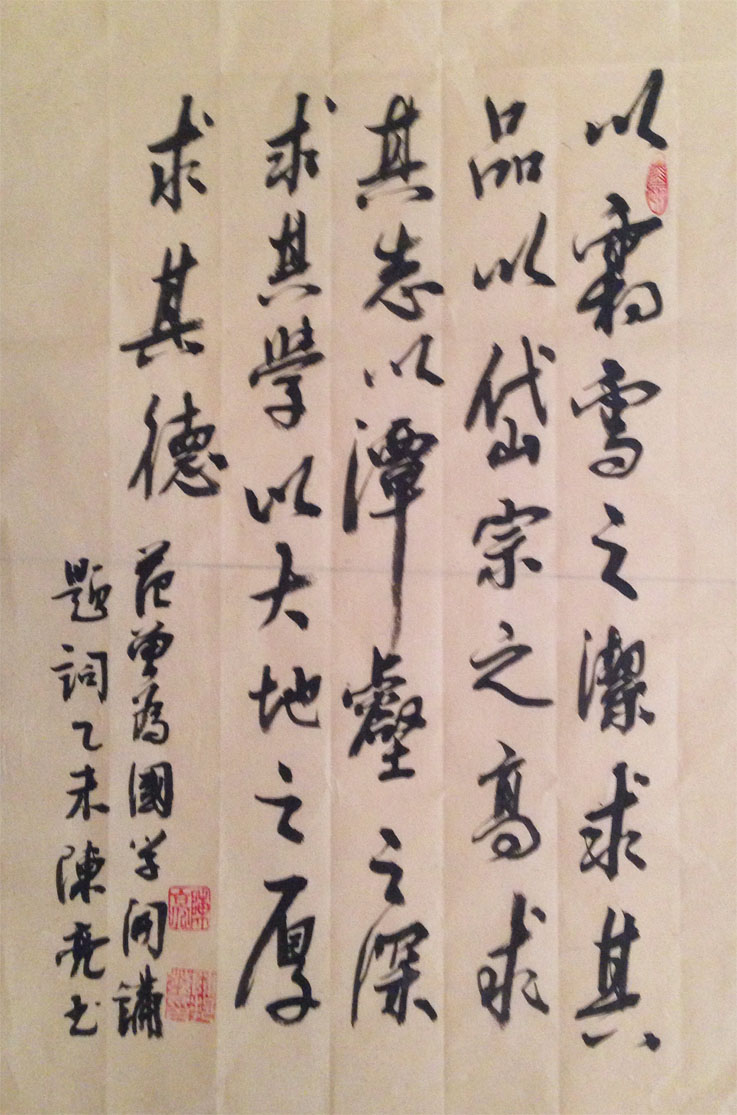 以霜雪之潔求其
品以岱宗之高求
其志以潭壑之深
求其學以大地之厚
求其德
范曾為國学開講
題詞乙未陳亮书